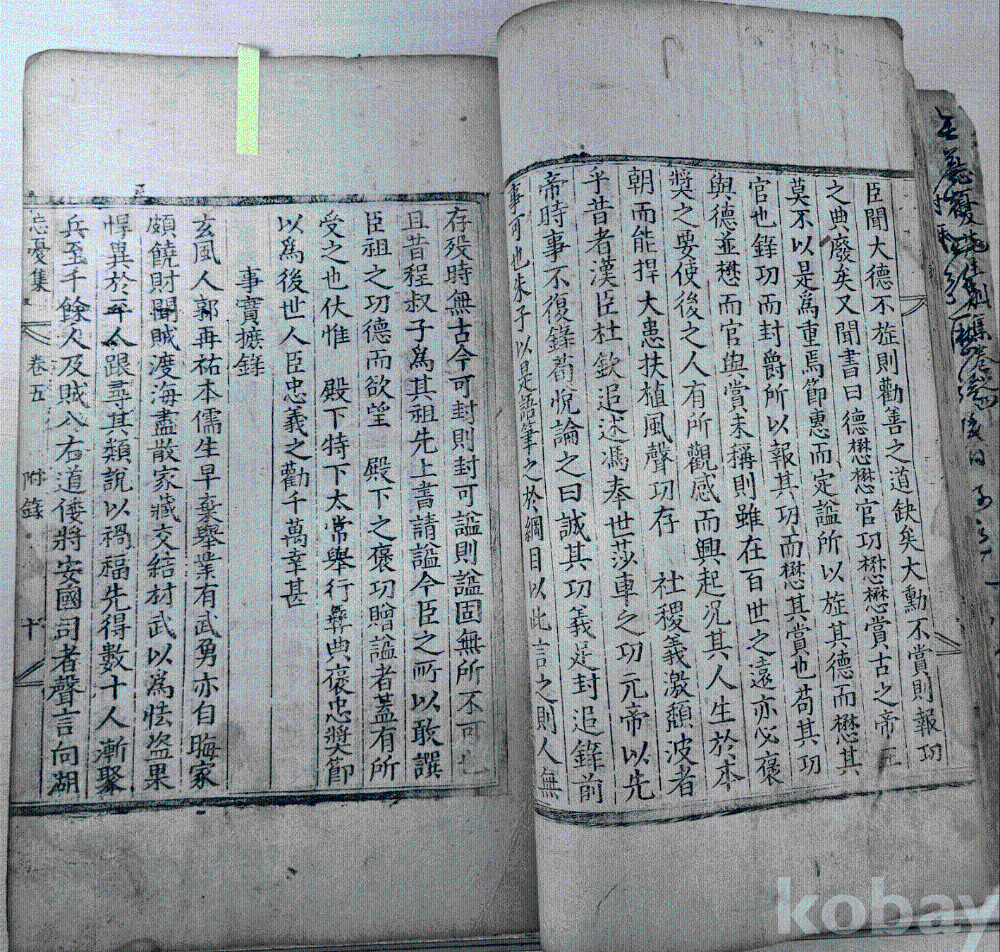 臣聞大德不旌則勸善之道缺矣大勳不賞則報功
之典廢矣又聞書曰德懋懋官功懋懋賞古之帝王
莫不以是爲重焉節惠而定諡所以旌其德而懋其
官也錄功而封爵所以報其功而懋其賞也苟其功
與德並懋而官與賞未稱則雖在百世之遠亦必褒
奬之要使後之人有所觀感而興起况其人生於本
朝而能捍大患扶植風聲功存 社稷義激頹波者
乎昔者漢臣杜欽追述馮奉世莎車之功元帝以先
帝時事不復錄荀悅論之曰誠其功義足封追錄前
事可也朱子以是語筆之於綱目以此言之則人無
存殁時無古今可封則封可諡則諡固無所不可也
且昔程叔子爲其祖先上書請諡今臣之所以敢譔
臣祖之功德而欲望 殿下之褒功贈諡者蓋有所
受之也伏惟 殿下特下太常舉行彝典褒忠奬節
以爲後世人臣忠義之勸千萬幸甚
事實摭錄
玄風人郭再祐本儒生早棄擧業有武勇亦自晦家
頗饒財聞賊渡海盡散家藏交結材武以爲怯盜果
悍異於平人跟尋其類說以禍福先得數十人漸聚
兵至千餘人及賊入右道倭將安國司者聲言向湖
忘憂集 卷五 附錄 十
kobay